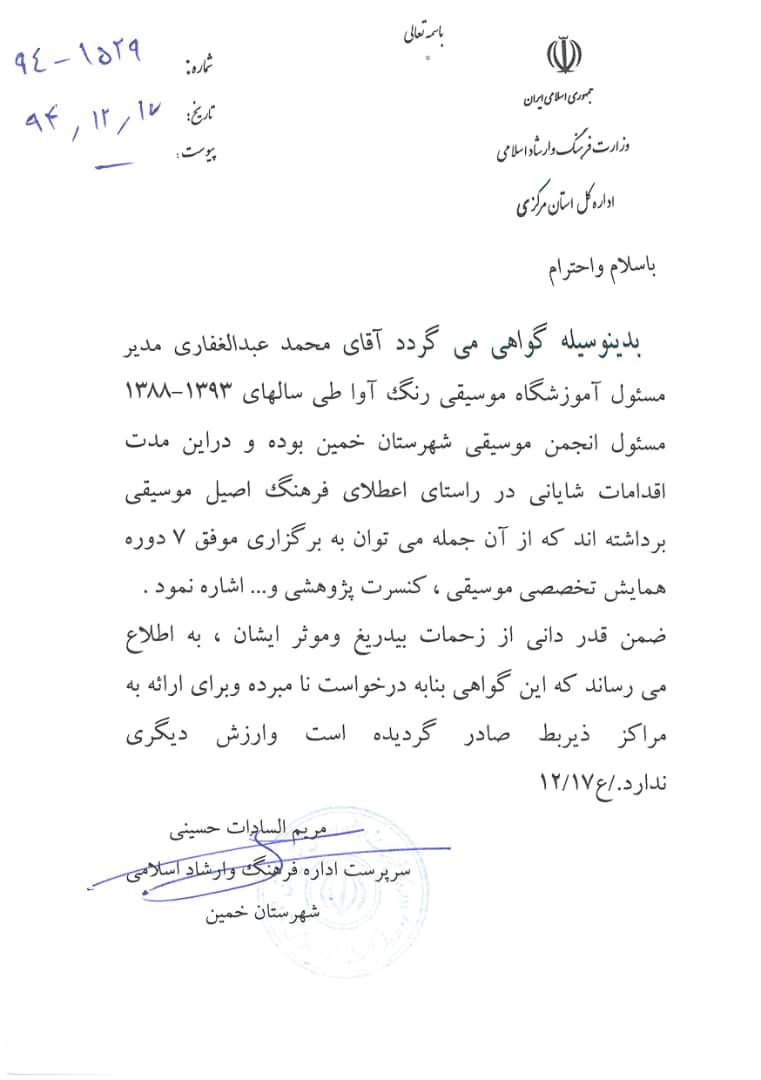 باسمه تعالی
جمهوری اسلامی ایران
وزارت فرهنگ وارشاد اسلامی
اداره کل استان مرکزی
شماره: ۱۵۲۹-۹٤
تاریخ: ۹۴,۱۲,۱۷
پیوست: —
باسلام واحترام
بدینوسیله گواهی می گردد آقای محمد عبدالغفاری مدیر
مسئول آموزشگاه موسیقی رنگ آوا طی سالهای ۱۳۹۳-۱۳۸۸
مسئول انجمن موسیقی شهرستان خمین بوده و دراین مدت
اقدامات شایانی در راستای اعطلای فرهنگ اصیل موسیقی
برداشته اند که از آن جمله می توان به برگزاری موفق ۷ دوره
همایش تخصصی موسیقی ، کنسرت پژوهشی و... اشاره نمود .
ضمن قدر دانی از زحمات بیدریغ وموثر ایشان ، به اطلاع
می رساند که این گواهی بنابه درخواست نا مبرده وبرای ارائه به
مراکز ذیربط صادر گردیده است وارزش دیگری
ندارد./ع۱۲/۱۷
مریم السادات حسینی
سرپرست اداره فرهنگ وارشاد اسلامی
شهرستان خمین